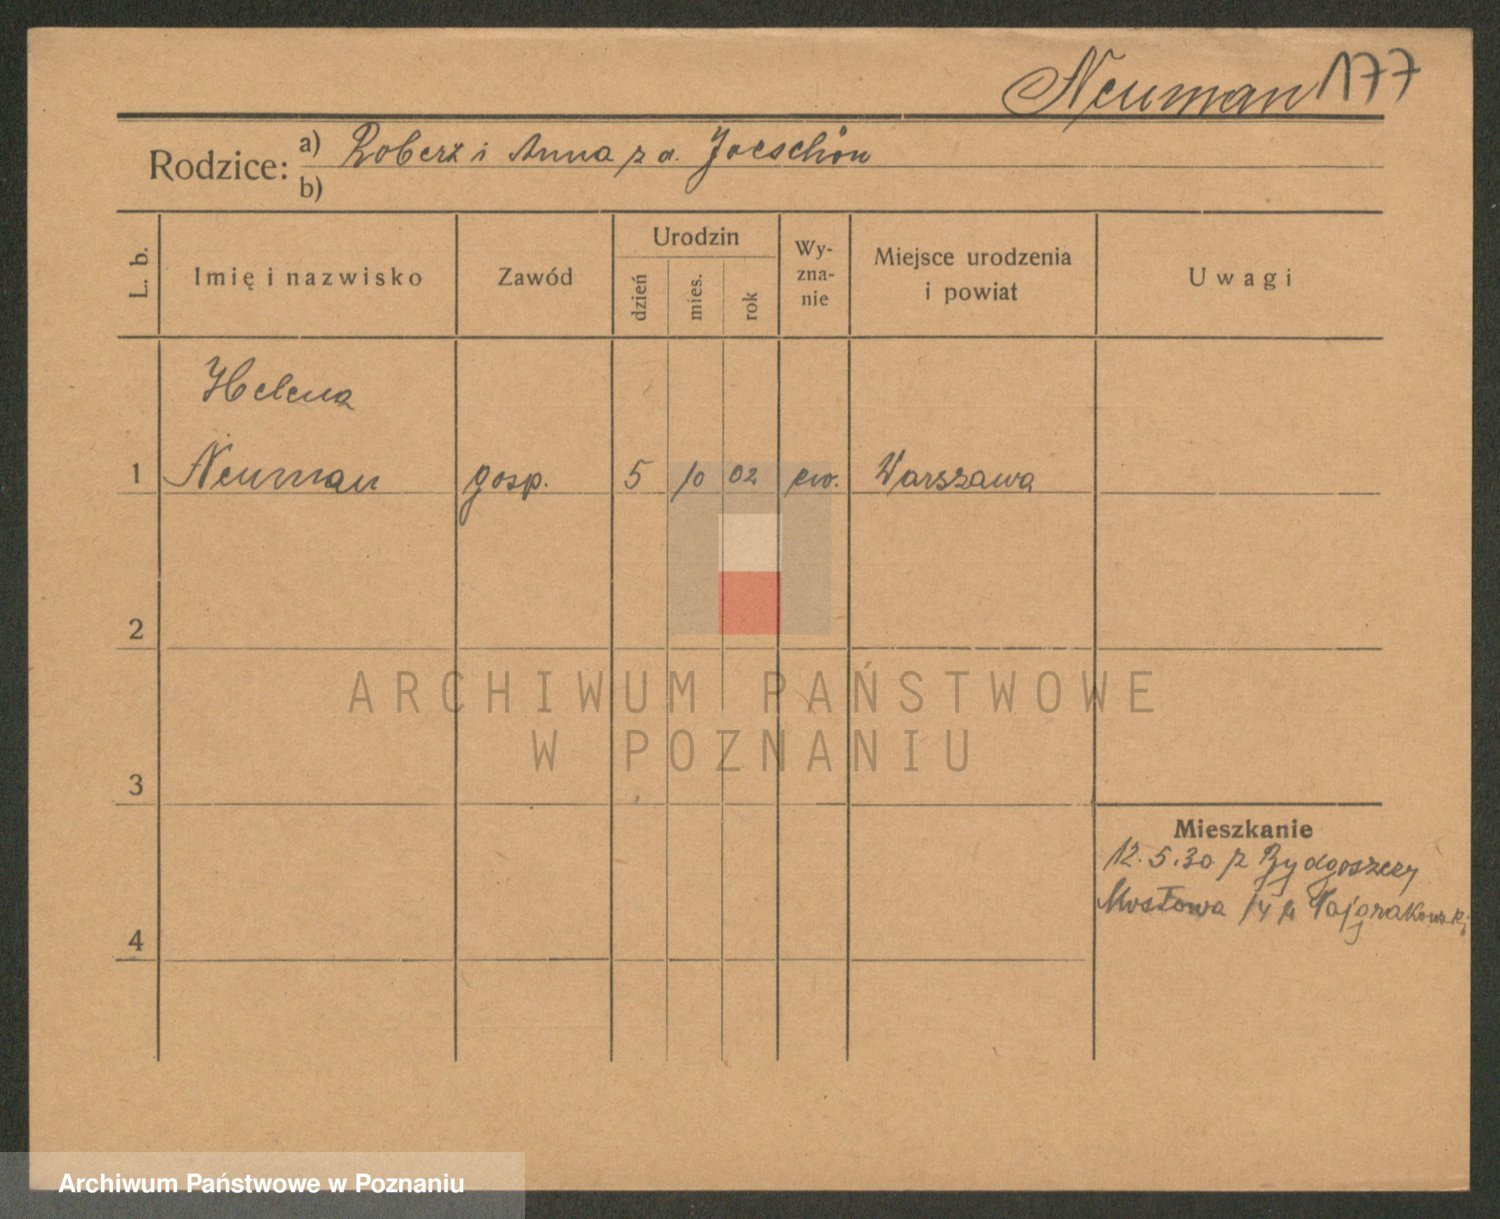 Neuman 177
Rodzice: a) Robert i Anna z d. Joeschön
b)
L. b.
Imię i nazwisko
Zawód
Urodzin
dzień
mies.
rok
Wy-
zna-
nie
Miejsce urodzenia
i powiat
Uwagi
Helena
1 Neuman gosp. 5 10 02 ew. Warszawa
2
3
4
Mieszkanie
12.5.30 z Bydgoszczy
Mostowa 14
ARCHIWUM PAŃSTWOWE
W POZNANIU
Archiwum Państwowe w Poznaniu